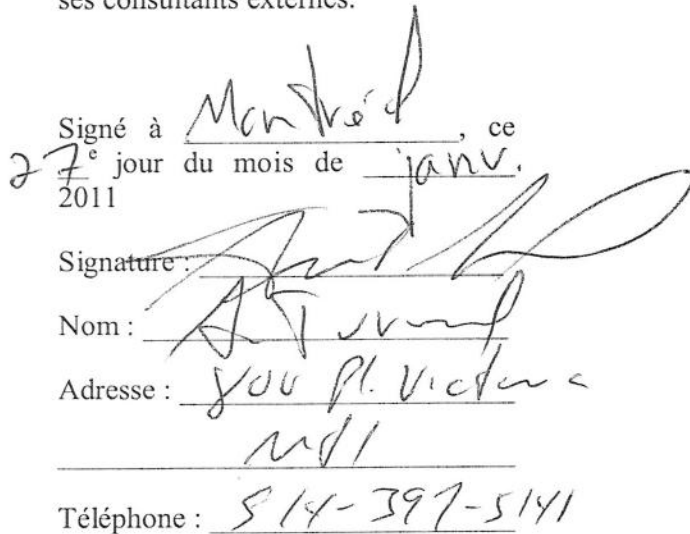 ses consultants externes.
Signé à Montréal, ce
27e jour du mois de janv.
2011
Signature :
Nom :
Adresse : 800 Pl. Victoria
Mtl
Téléphone : 514-397-5141